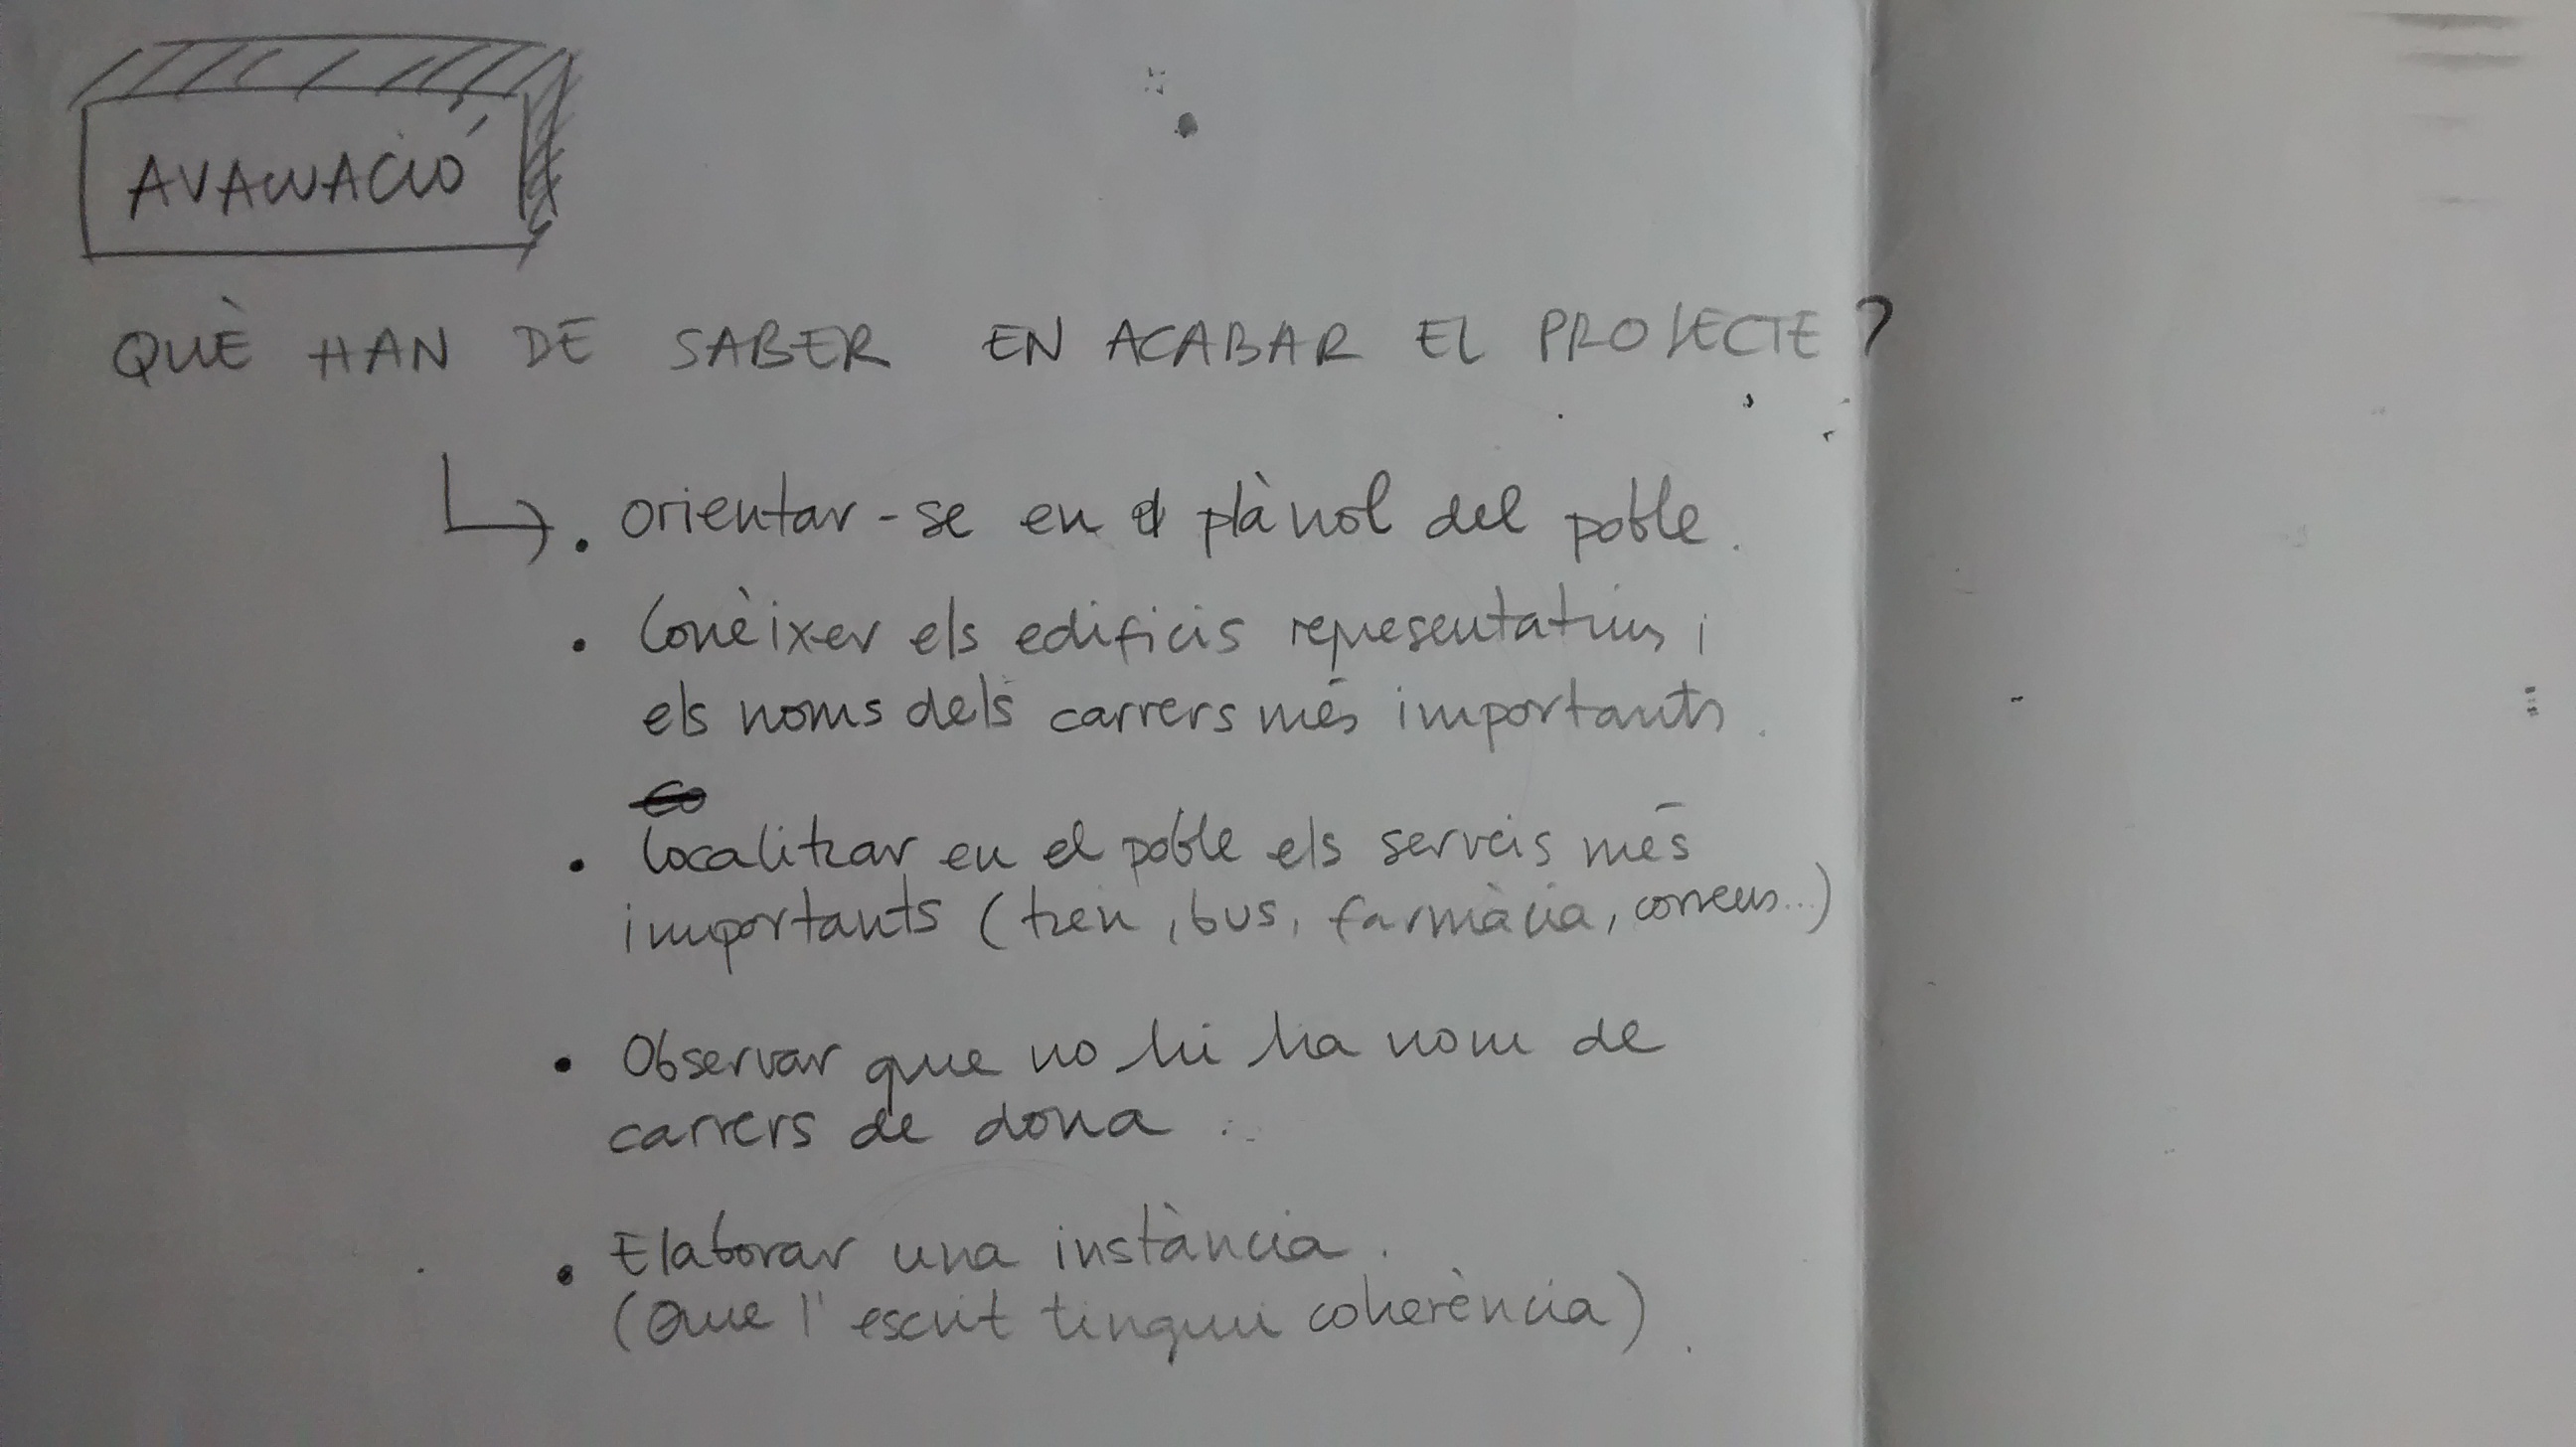 AVALUACIÓ
QUÈ HAN DE SABER EN ACABAR EL PROJECTE?
• orientar-se en el plànol del poble.
• Conèixer els edificis representatius i
els noms dels carrers més importants.
• localitzar en el poble els serveis més
importants (tren, bus, farmàcia, correus...)
• Observar que no hi ha nom de
carrers de dona.
• Elaborar una instància.
(Que l'escrit tingui coherència).